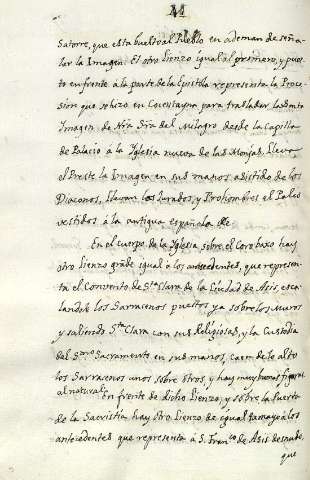 M
Satorre, que està buelto al Pueblo en ademan de seña-
lar la Imagen. El otro Lienzo igual al primero, y pues-
to enfrente à la parte de la Epistola representa la Proce-
sion que se hizo en Cocentayna para trasladar la Santa
Imagen de Nra Sra del Milagro desde la Capilla
de Palacio à la Iglesia nueva de las Monjas. Lleva
el Preste la Imagen en sus manos asistido de los
Diaconos, llevan los Jurados, y Prohombres el Palio
vestidos à la antigua española.
En el cuerpo de la Iglesia sobre el Coro baxo hay
otro Lienzo grãde igual à los antecedentes, que represen-
ta el Convento de Sta Clara de la Ciudad de Asis, esca-
landole los Sarracenos puestos ya sobre los Muros
y saliendo Sta Clara con sus Religiosas, y la Custodia
del Smo Sacramento en sus manos, caen de lo alto
los Sarracenos unos sobre otros, y hay muy buenas figuras
al natural.
En frente de dicho Lienzo, y sobre la Puerta
de la Sacristia, hay otro Lienzo de igual tamaño à los
antecedentes que representa à S. Franco de Asis desnudo,
que